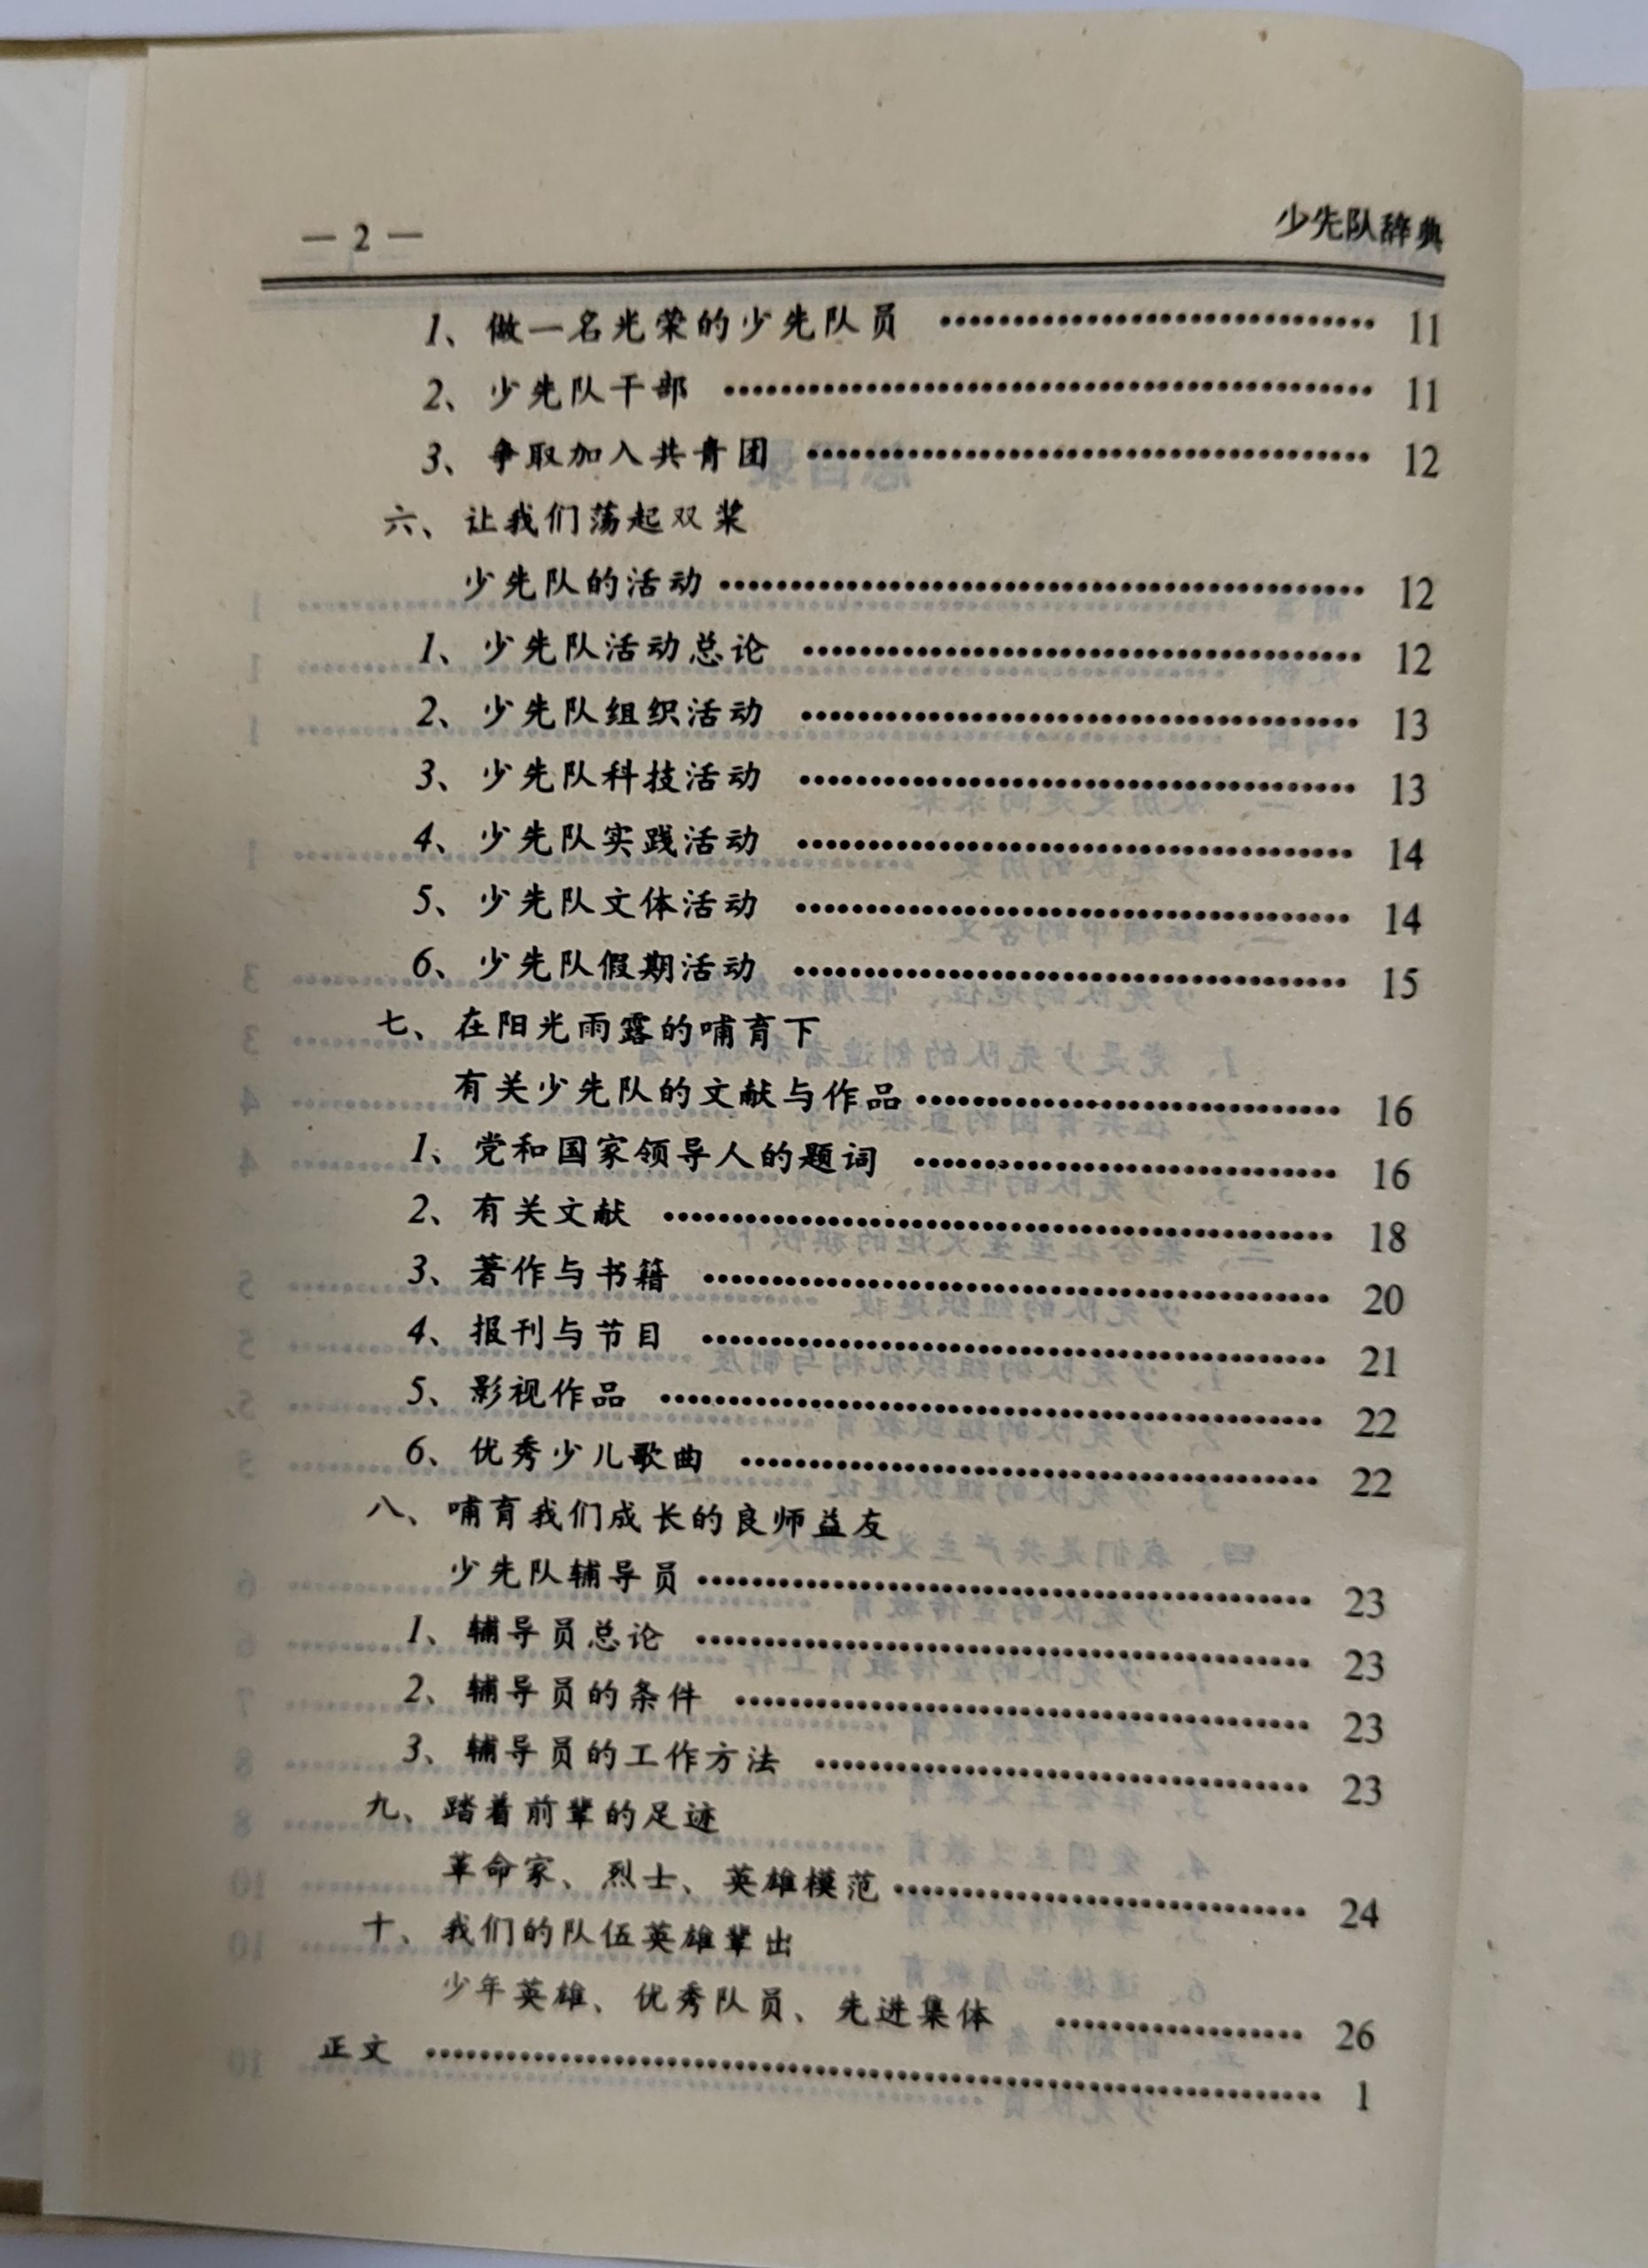 — 2 — 少先队辞典
1、做一名光荣的少先队员 ………………………… 11
2、少先队干部 ………………………… 11
3、争取加入共青团 ………………………… 12
六、让我们荡起双桨
少先队的活动 ………………………… 12
1、少先队活动总论 ………………………… 12
2、少先队组织活动 ………………………… 13
3、少先队科技活动 ………………………… 13
4、少先队实践活动 ………………………… 14
5、少先队文体活动 ………………………… 14
6、少先队假期活动 ………………………… 15
七、在阳光雨露的哺育下
有关少先队的文献与作品 ………………………… 16
1、党和国家领导人的题词 ………………………… 16
2、有关文献 ………………………… 18
3、著作与书籍 ………………………… 20
4、报刊与节目 ………………………… 21
5、影视作品 ………………………… 22
6、优秀少儿歌曲 ………………………… 22
八、哺育我们成长的良师益友
少先队辅导员 ………………………… 23
1、辅导员总论 ………………………… 23
2、辅导员的条件 ………………………… 23
3、辅导员的工作方法 ………………………… 23
九、踏着前辈的足迹
革命家、烈士、英雄模范 ………………………… 24
十、我们的队伍英雄辈出
少年英雄、优秀队员、先进集体 ………………… 26
正文 ………………………… 1